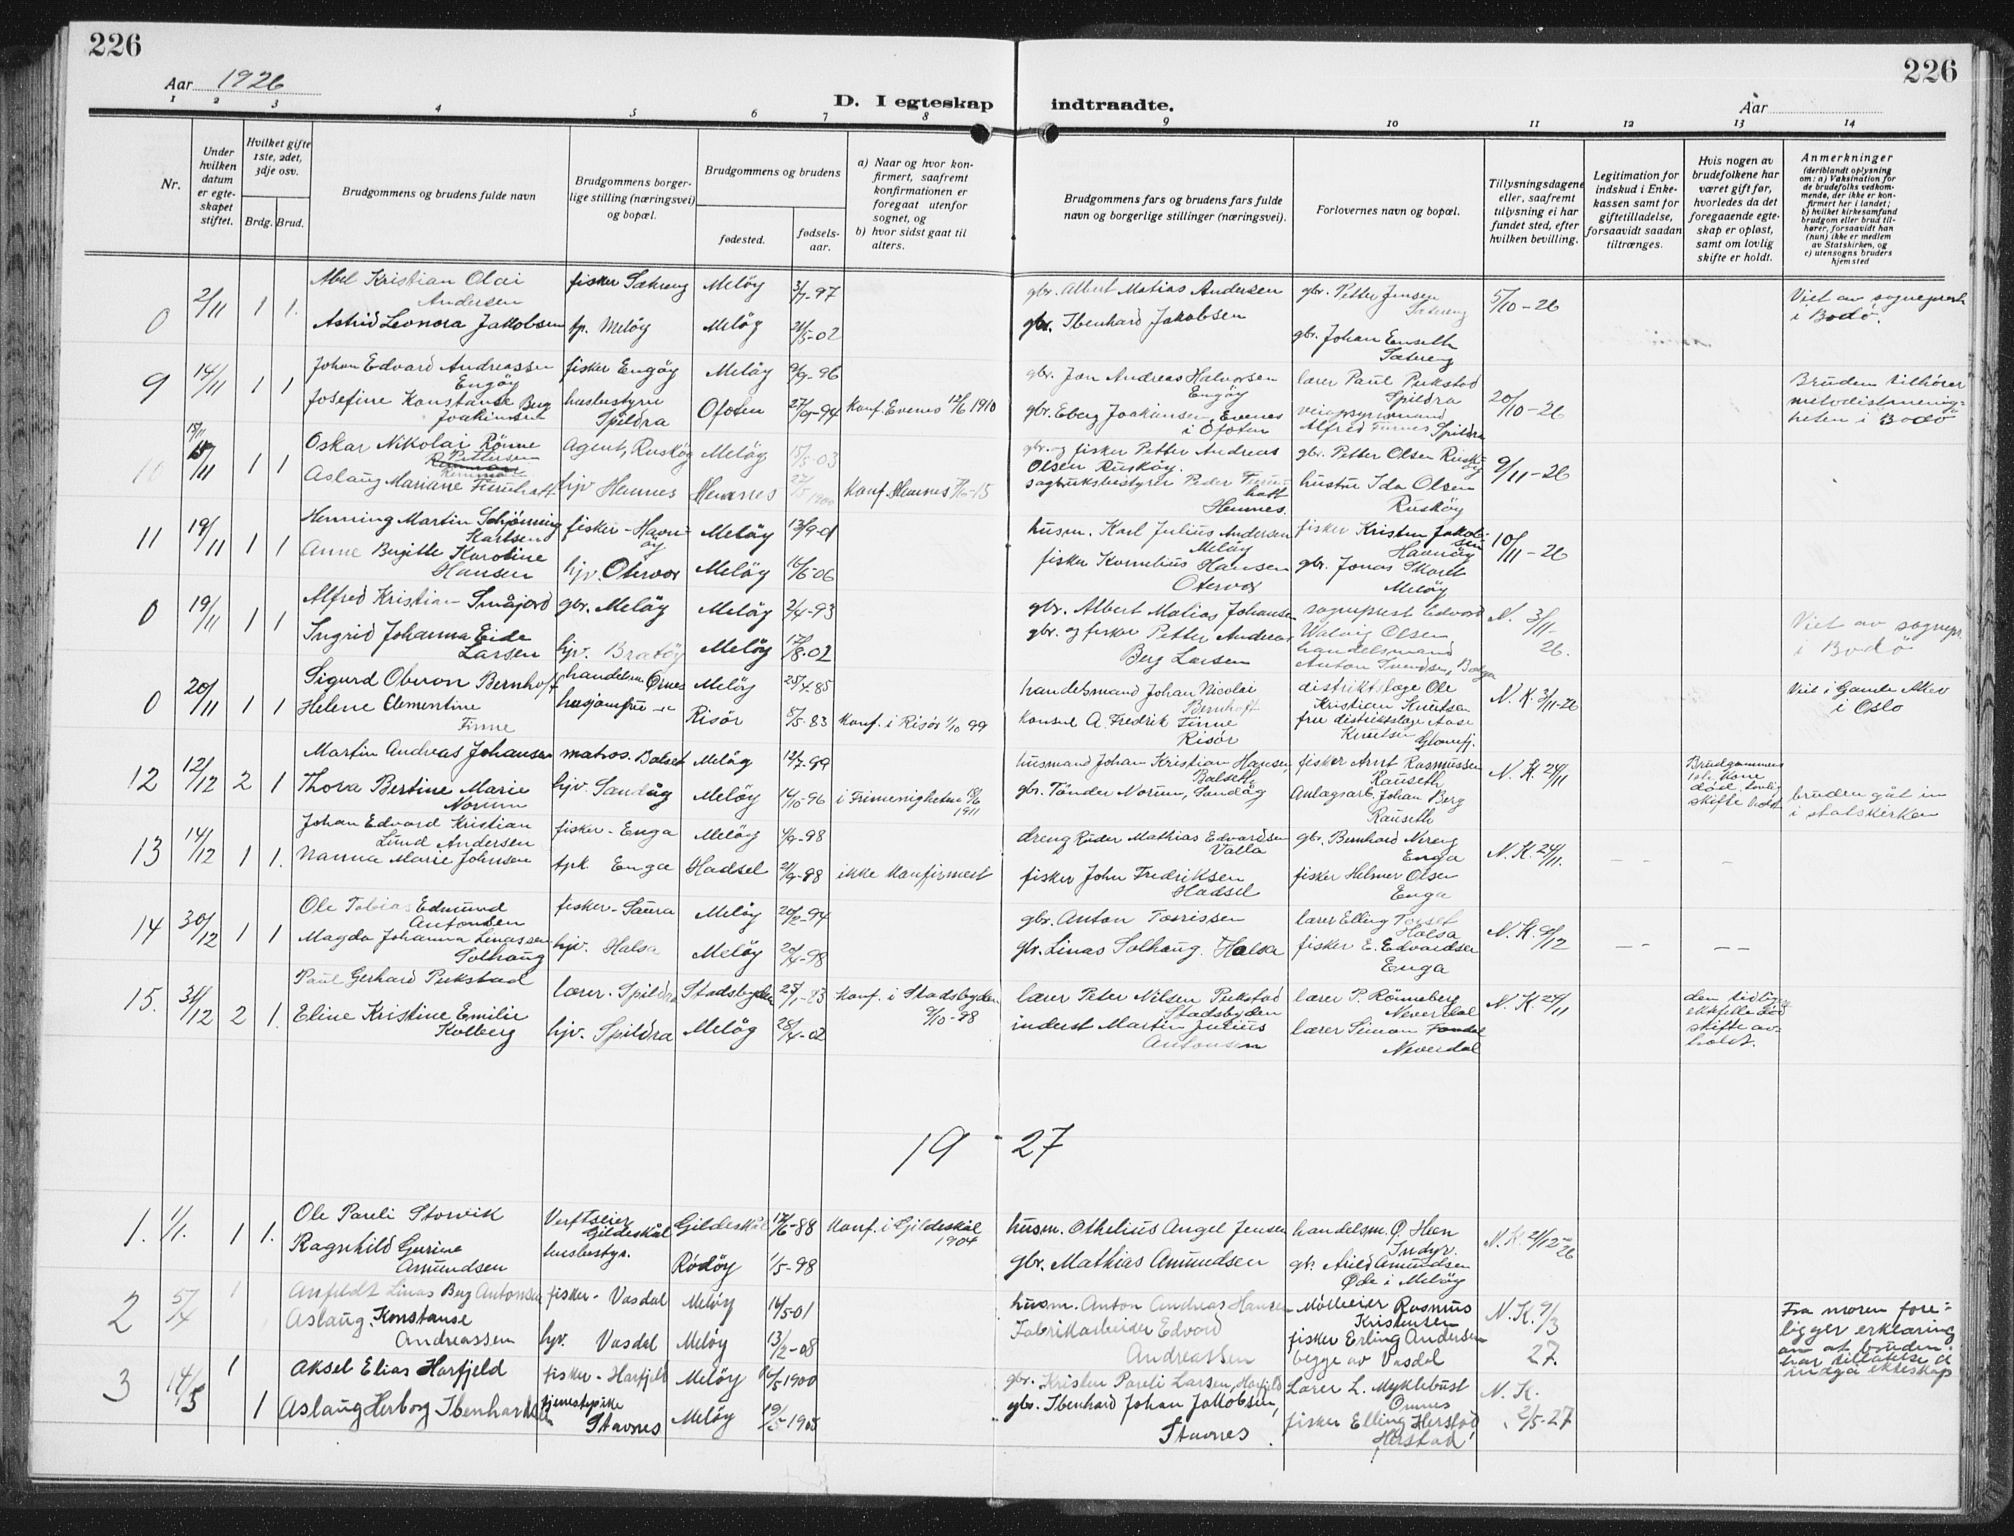 226
226
Aar 1926
Aar
D. I egteskap indtraadte.
1 2 3 4 5 6 7 8 9 10 11 12 13 14
Nr.
Under hvilken datum er egteskapet stiftet.
Hvilket gifte 1ste, 2det, 3dje osv.
Brdg. Brud.
Brudgommens og brudens fulde navn
Brudgommens borgerlige stilling (næringsvei) og bopæl.
Brudgommens og brudens
fødested.
fødselsaar.
a) Naar og hvor konfirmert, saafremt konfirmationen er foregaat utenfor sognet, og
b) hvor sidst gaat til alters.
Brudgommens fars og brudens fars fulde navn og borgerlige stillinger (næringsvei).
Forlovernes navn og bopæl.
Tillysningsdagene eller, saafremt tillysning ei har fundet sted, efter hvilken bevilling.
Legitimation for indskud i Enkekassen samt for giftetilladelse, forsaavidt saadan tiltrænges.
Hvis nogen av brudefolkene har været gift før, hvorledes da det foregaaende egteskap er opløst, samt om lovlig skifte er holdt.
Anmerkninger (deriblandt oplysning om: a) Vaksination for de brudefolks vedkommende, der ikke er konfirmert her i landet; b) hvilket kirkesamfund brudgom eller brud tilhører, forsaavidt han (hun) ikke er medlem av Statskirken, og c) utensogns bruders hjemsted
0 2/11 1 1. Abel Kristian Olai Andersen fisker Sætreng Meløy 3/7-97 gbr. Albert Matias Andersen gbr. Petter Jensen Sætereng 5/10-26 Viet av sogneprest i Bodø.
Astrid Leonora Jakobsen tp. Meløy Meløy 21/5-02 gbr. Ibenhard Jakobsen gbr. Johan Enseth Sætereng
9 14/11 1 1 Johan Edvard Andreassen Engøy fisker Engøy Meløy 9/9-96 gbr. Jan Andreas Halvorsen Engøy lærer Paul Pukstad Spildra 20/10-26 Bruden tilhører metodistmenigheten i Bodø
Josefine Konstanse Berg Joakimsen husbestyrer Spildra Ofoten 27/9-94 Konf. Evenes 12/6 1910 gbr. Eberg Joakimsen, Evenes i Ofoten veiopsynsmand Alfred Furnes Spildra
10 15/11 1 1 Oskar Nikolai Rönne Pettersen Agent, Ruskøy Meløy 15/5-03 gbr. og fisker Petter Andreas Olsen Ruskøy. gbr. Petter Olsen Ruskøy 9/11-26
Aslaug Mariane Furuhatt hjv Hemnes Hemnes 27/5 1900 Konf. Hemnes -15 sagbruksbestyrer Peder Furuhatt Hemnes. hustru Ida Olsen Ruskøy
11 19/11 1 1 Henning Martin Schjønning Karlsen fisker - Havnøy Meløy 13/9-01 husm. Karl Julius Andersen Meløy fisker Kristen Jakobsen Havnøy 10/11-26
Anne Birgitte Karoline Hansen hjv. Otervær Meløy 16/6-06 fisker Kornelius Hansen Otervær gbr. Jonas Skaret Meløy
0 19/11 1 1 Alfred Kristian Småjord gbr. Meløy Meløy 2/4-93 gbr. Albert Matias Johansen sogneprest Edvard Walvig Olsen N. 3/11-26. Viet av sognepr. i Bodø
Ingrid Johanna Eide Larsen hjv. Bratøy Meløy 17/8-02 gbr. og fisker Petter Andreas Berg Larsen handelsmand Anton Svendsen, Bolga
0 20/11 1 1 Sigurd Oberon Bernhoft handelsm. Ørnes Meløy 25/4-85 handelsmand Johan Nicolai Bernhoft distriktslæge Ole Kristian Knutsen N. K. 3/11-26 Viet i Gamle Aker i Oslo
Helene Clementine Finne husjomfru -"- Risör 8/5-83 Konf. i Risör 1/10 99 Konsul A. Fredrik Finne Risör frue distriktslæge Aase Knutsen Glomfj.
12 12/12 2 1 Martin Andreas Johansen matros. Bolset Meløy 12/7-99 husmand Johan Kristian Hansen, Bolseth fisker Arnt Rasmussen Rauseth N. K. 24/11 Brudgommens 1ste Kone död. Lovlig skifte holdt
Thora Bertine Marie Norum hjv. Sandåg Meløy 14/10-96 i Frimenigheten 18/6 1911 gbr. Tönder Norum, Sandåg Anlagsarb. Johan Berg Rauseth bruden gåt inn i statskirken
13 14/12 1 1. Johan Edvard Kristian Lund Andersen fisker - Enga Meløy 4/9-98 dreng Röder Mathias Edvardsen Valla gbr. Bernhard Nereng Enga N. K. 24/11. – – –
Nanna Marie Johnsen tpk. Enga Hadsel 21/9-98 ikke konfirmert fisker John Fredriksen Hadsel fisker Helmer Olsen Enga
14 30/12 1 1 Ole Tobias Edmund Antonsen fisker - Saura Meløy 20/2-94 gbr. Anton Tørrissen lærer Elling Torset Halsa N. K. 9/12 – – – –
Magda Johanna Linassen Solhaug hjv. Halsa Meløy 20/4-98 gbr. Linas Solhaug. Halsa fisker E. Edvardsen Enga
15. 31/12 2 1. Paul Gerhard Pukstad lærer - Spildra Stadsbygden 25/1-83 Konf. i Stadsbygden 9/10-98 lærer Peter Nilsen Pukstad Stadsbyden lærer P. Rönneberg Neverdal N. K. 24/11 den tidligere ektefelle död skifte avholdt.
Eline Kristine Emilie Kolberg hjv. Spildra Meløy 28/4-02 inderst Martin Julius Antonsen lærer Simon Fondal Neverdal
19 - 27
1. 1/1. 1 1. Ole Pareli Storvik Verftseier Gildeskål Gildeskål 17/6-88 Konf. i Gildeskål 1904 husm. Othelius Angel Jensen handelsm. O. Heen Indyr. N. K. 21/12-26
Ragnhild Gurine Amundsen husbestyr. Rødøy 1/5-98 gbr. Mathias Amundsen gb. Arild Amundsen Øde i Meløy
2 5/4 1 Anfeldt Linas Berg Antonsen fisker - Vasdal Meløy 16/5-01 husm. Anton Andreas Hansen Mölleeier Rasmus Kristensen N. K. 9/3 27. Fra moren foreligger erklæring om at bruden har tillatelse til indgå ekteskap
Aslaug Konstanse Andreassen hjv. Vasdal Meløy 13/2-08 Fabrikarbeider Edvard Andreassen fisker Erling Andersen begge av Vasdal
3 14/5 1 Aksel Elias Harfjeld fisker - Harfjeld Meløy 6/5 1900 gbr. Kristen Pareli Larsen, Harfjeld Lærer L. Myklebust Ornes N. K. 2/5-27
1 Aslaug Herborg Ibenhardsen tjenestepike Støvnes Meløy 19/5-1905 gbr. Ibenhard Johan Jakobsen, Støvnes fisker Elling Herstad, Herstad